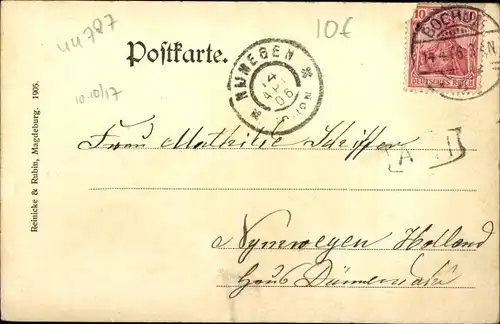 44787
10 €
Postkarte.
10-10/17
10
DEUTSCHES REICH
BOCHUM
NIJMEGEN
4
06
Frau Mathilde Schiffer
Nymwegen Holland
Haus
Reinicke & Rubin, Magdeburg. 1905.